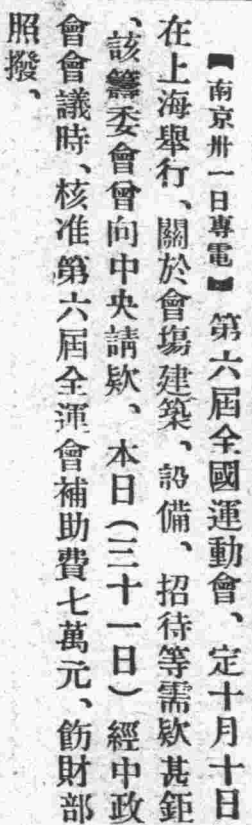 【南京卅一日專電】第六屆全國運動會、定十月十日
在上海舉行、關於會塲建築、設備、招待等需欵甚鉅
、該籌委會曾向中央請欵、本日(三十一日)經中政
會會議時、核准第六屆全運會補助費七萬元、飭財部
照撥、